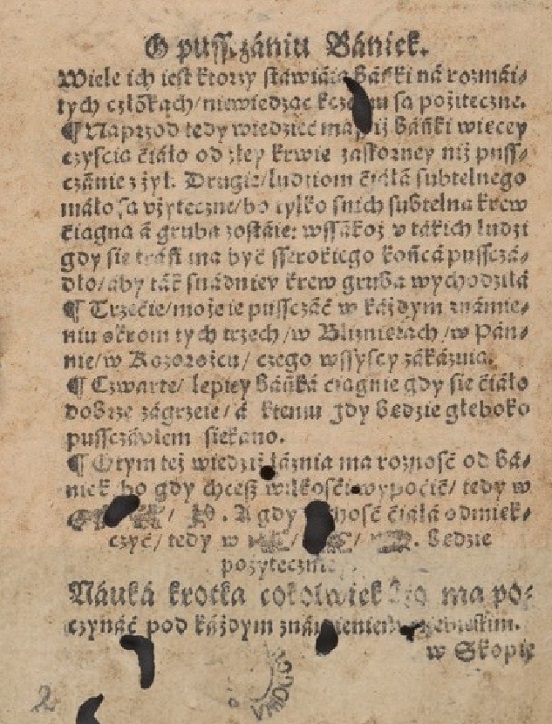 O pusſzániu Bániek.
Wiele ich ieſt ktorzy ſtáwiáią báńki ná rozmái⸗
tych człõkach/niewiedząc ſą pożyteczne.
¶ Naprzod tedy wiedzieć iż báńki więcey
czyſcią ćiáło od złey krwie zaſkorney niż puſſ⸗
czánie z żył. Drugie/ludziom ćiáłá ſubtelnego
máło ſą vżyteczne/bo tylko ſnich ſubtelną krew
ćiągną á gruba zoſtáie: wſſákoż v tákich ludzi
gdy ſię tráfi ma być ſſerokiego końcá puſſczá⸗
dło/áby ták ſnádniey krew gruba wychodziłá
¶ Trzećie/może ie puſſczáć w káżdym známie⸗
niu okrom tych trzech/w Bliźniętach/w Pán⸗
nie/w Kozorożcu/ czego wſſyſcy zákázuią.
¶ Czwarte/ lepiey báńká ciągnie gdy ſię ćiáło
dobrze zágrzeie/á ktemu gdy będzie głęboko
puſſczádłem ſiekano.
¶ Otym też wiedz iż łáźnia ma roznoſć od bá⸗
niek bo gdy chceſz wilkoſći wypoćić/ tedy w
A gdy ćiáłá odmięk⸗
czyć/ tedy w będzie
pożyteczn
Náuká krotka cokolwiek ma po⸗
czynáć pod káżdym známieniem
w Skopie
2